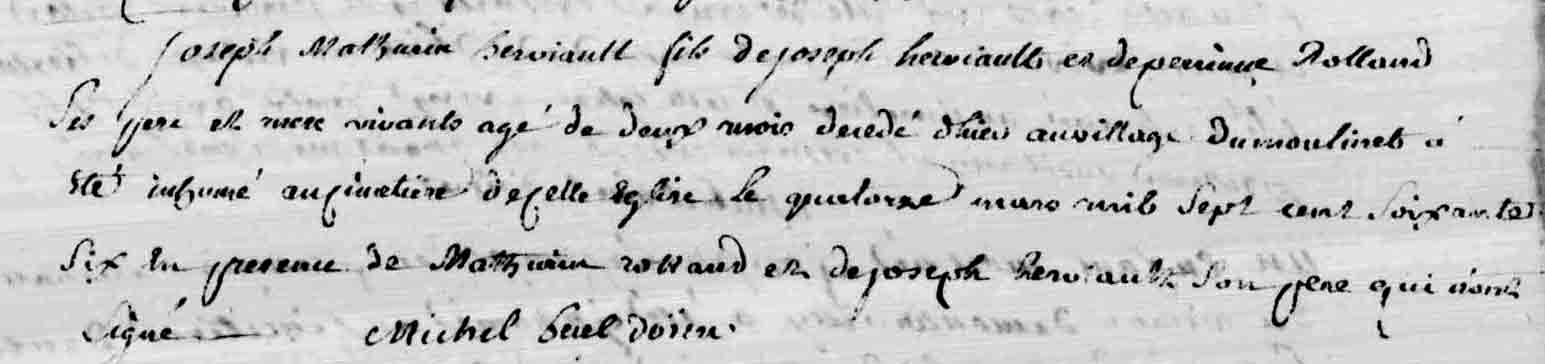 Joseph Mathurin herviault fils de joseph herviault et de perrinne Rolland
Ses pere et mere vivants agé de deux mois decedé d'hier au village du moulinet a
Eté inhumé au cimetiere de cette Eglise le quatorze mars mil Sept cent Soixante
Six En presence de Mathurin rolland et de joseph herviault Son pere qui n'ont
Signé Michel